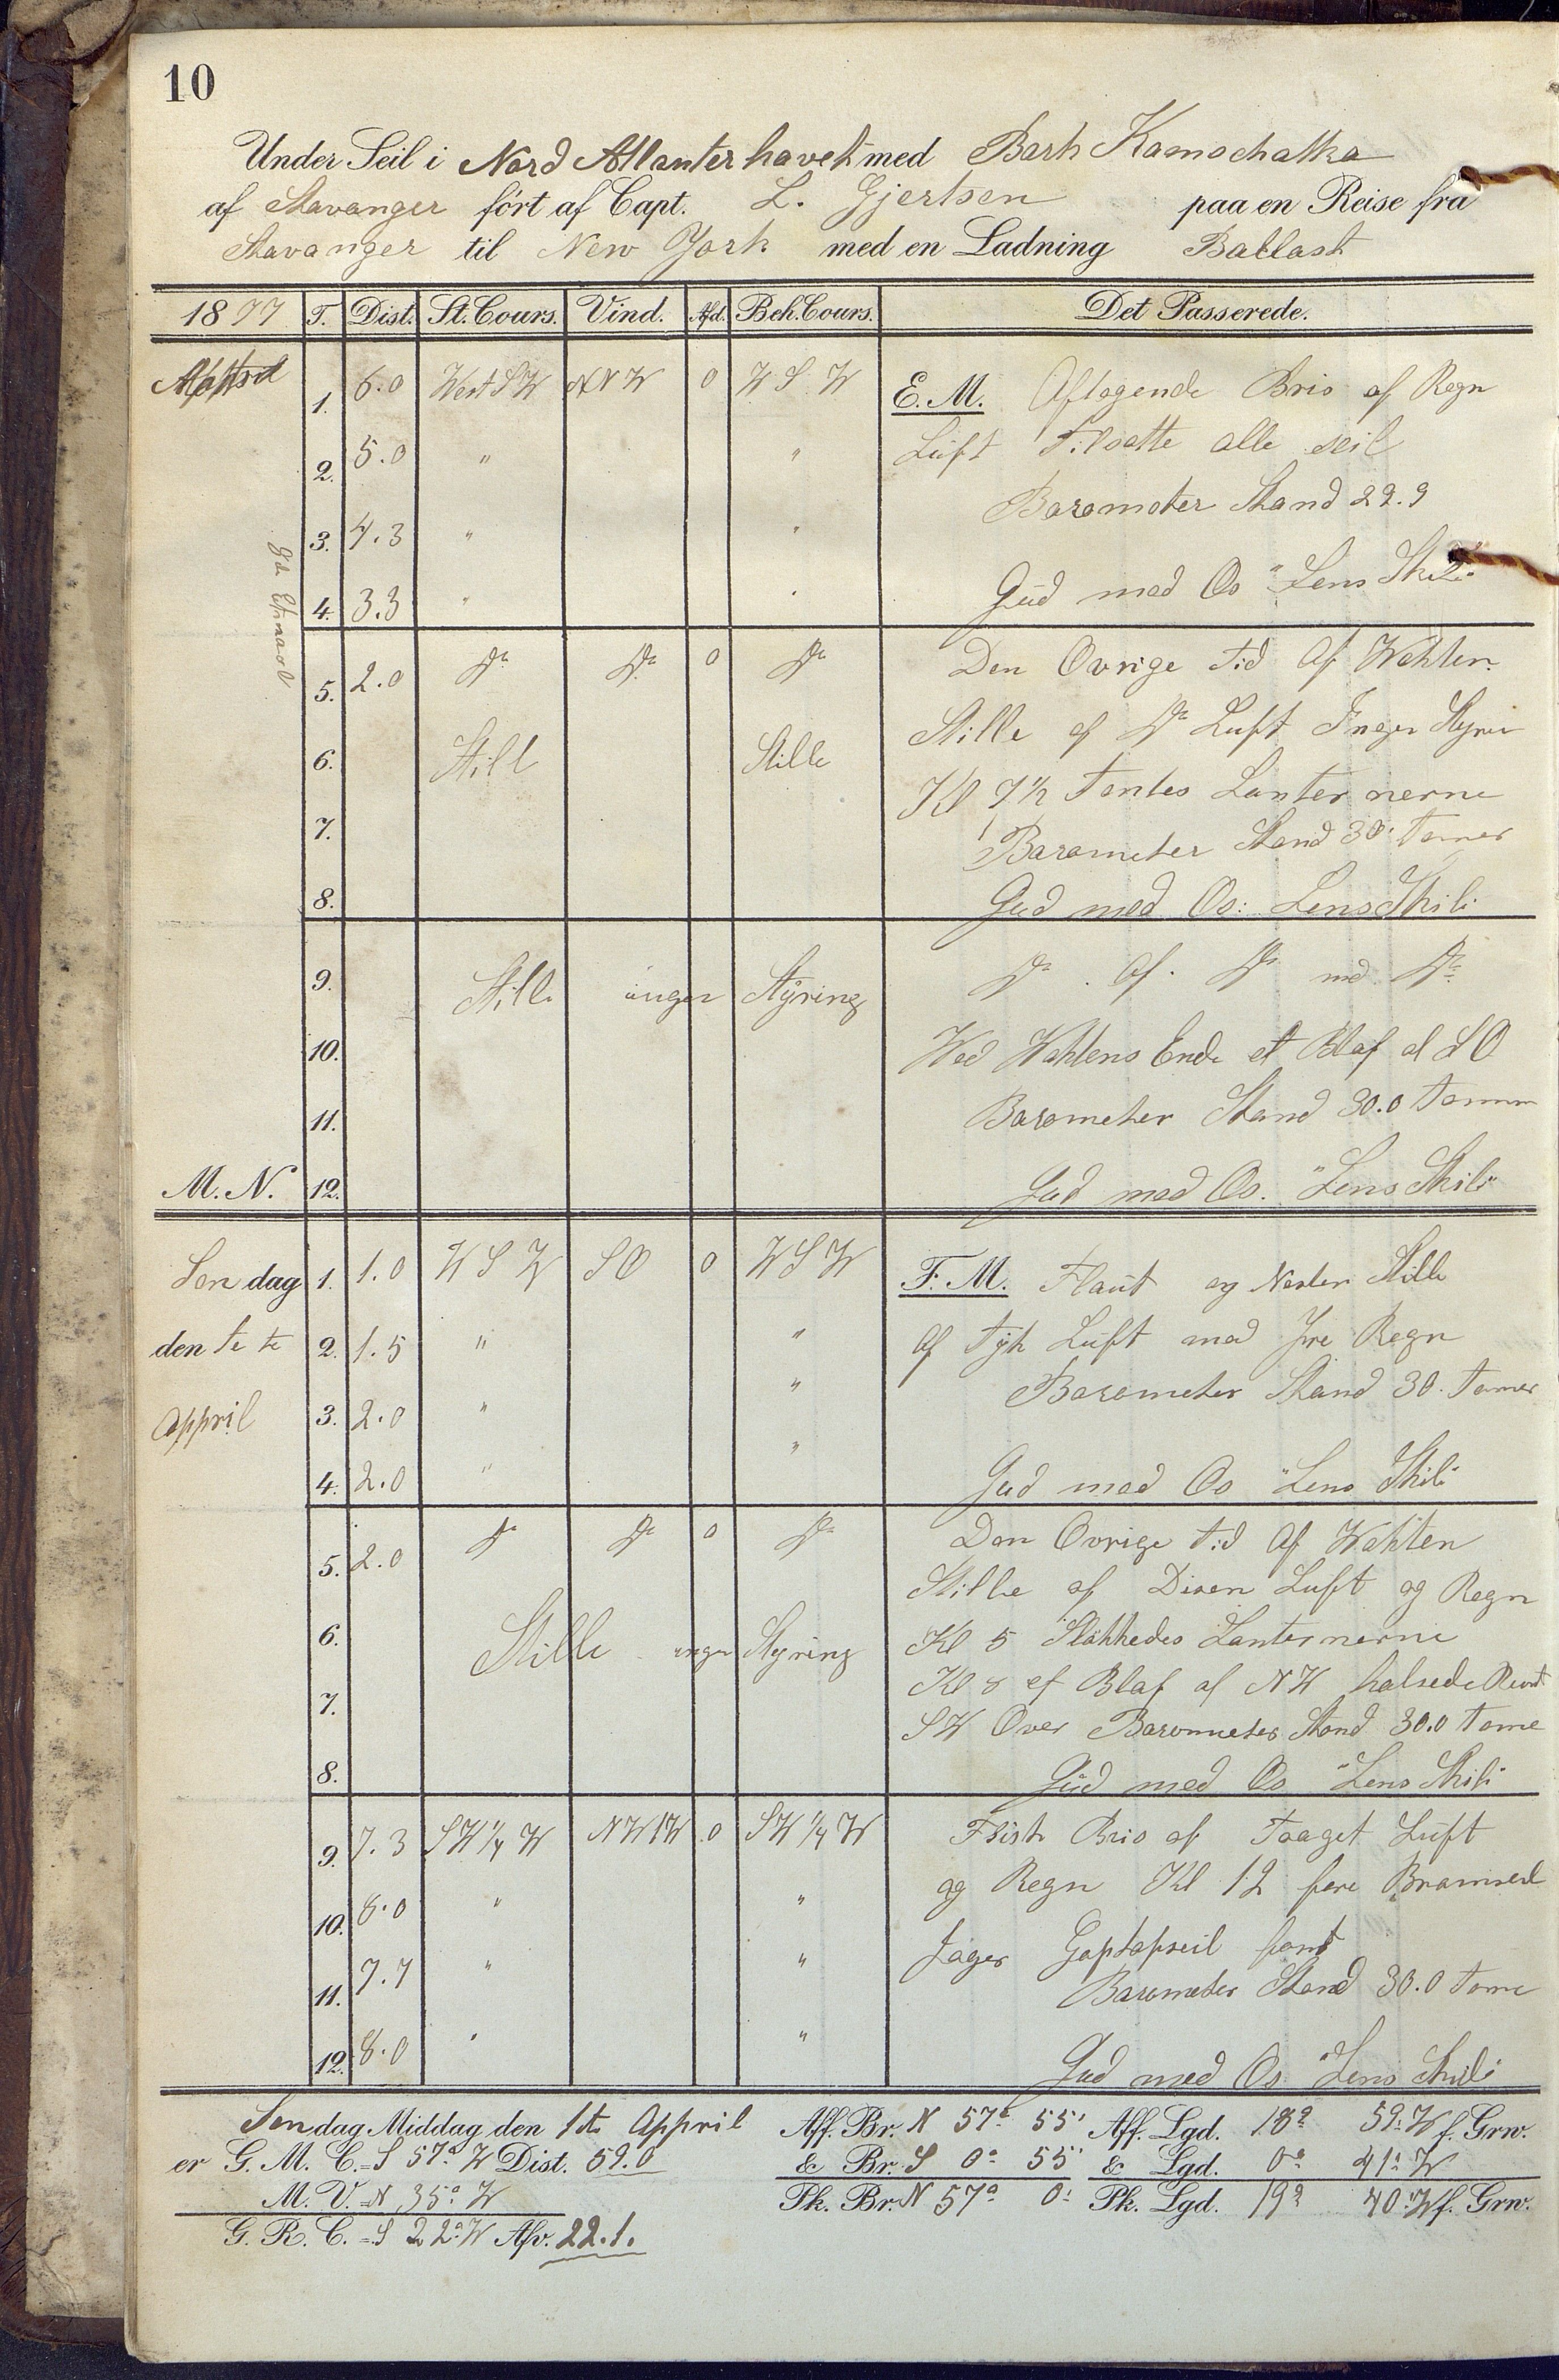 10
Under Seil i Nord Atlanterhavet med Bark Kamschatka
af Stavanger ført af Capt. L. Gjertsen paa en Reise fra
Stavanger til New York med en Ladning Ballast
1877 T. Dist. St. Cours. Vind. Afd. Beh. Cours. Det Passerede.
1. 6.0 West S W N N W 0 W S W E. M. Aftagende Bris af Regn
2. 5.0 " " Luft Tilsatte alle seil
3. 4.3 " " Barometer Stand 29.9
4. 3.3 " " Gud med Os "Lens Skib"
5. 2.0 Do Do 0 Do Den Ovrige tid Af Wahten
6. Still Stille Stille af Do Luft Ingen Styrin
7. Kl 7 1/2 Tentes Lanternerne
Barometer Stand 30. Tomer
8. Gud med Os: Lens Skib:
9. Still ingen Styring Do . Af . Do med Do
10. Wed Wahtens Ende et Blaf af S O
11. Barometer Stand 30.0 Tommm
M. N. 12. Gud med Os. "Lens Skib"
Søndag 1. 1.0 W S W S O 0 W S W F. M. Flaut og Nesten Stille
den 1ste 2. 1.5 " " Af Tyk Luft med Yre Regn
Appril 3. 2.0 " " Barometer Stand 30. Tomer
4. 2.0 " " Gud med Os "Lens Skib"
5. 2.0 Do Do 0 Do Den Ovrige tid Af Wahten
Stille af Disen Luft og Regn
6. Stille ingen Styring Kl 5 Slökkedes Lanternerne
7. Kl 8 et Blaf af N W halsede Rundt
S W Over Barometer Stand 30.0 Tome
8. Gud med Os "Lens Skib"
9. 7.3 S W 1/4 W N W t W 0 S W 1/4 W Frisk Bris af Taaget Luft
10. 8.0 " " og Regn Kl 12 fare Bramseil
11. 7.7 " " Jager Gaptopseil fast
Barometer Stand 30.0 Tome
12. 8.0 " " Gud med Os "Lens Skib"
Søndag Middag den 1te Appril Aff. Br. N 57° 55' Aff. Lgd. 18° 59' W f. Grw.
er G. M. C. = S 57° W Dist. 59.0 & Br. S 0° 55' & Lgd. 0° 41' W
M. V. = N 35° W Pk. Br. N 57° 0' Pk. Lgd. 19° 40' W f. Grw.
G. R. C. = S 22° W Afv. 22.1.